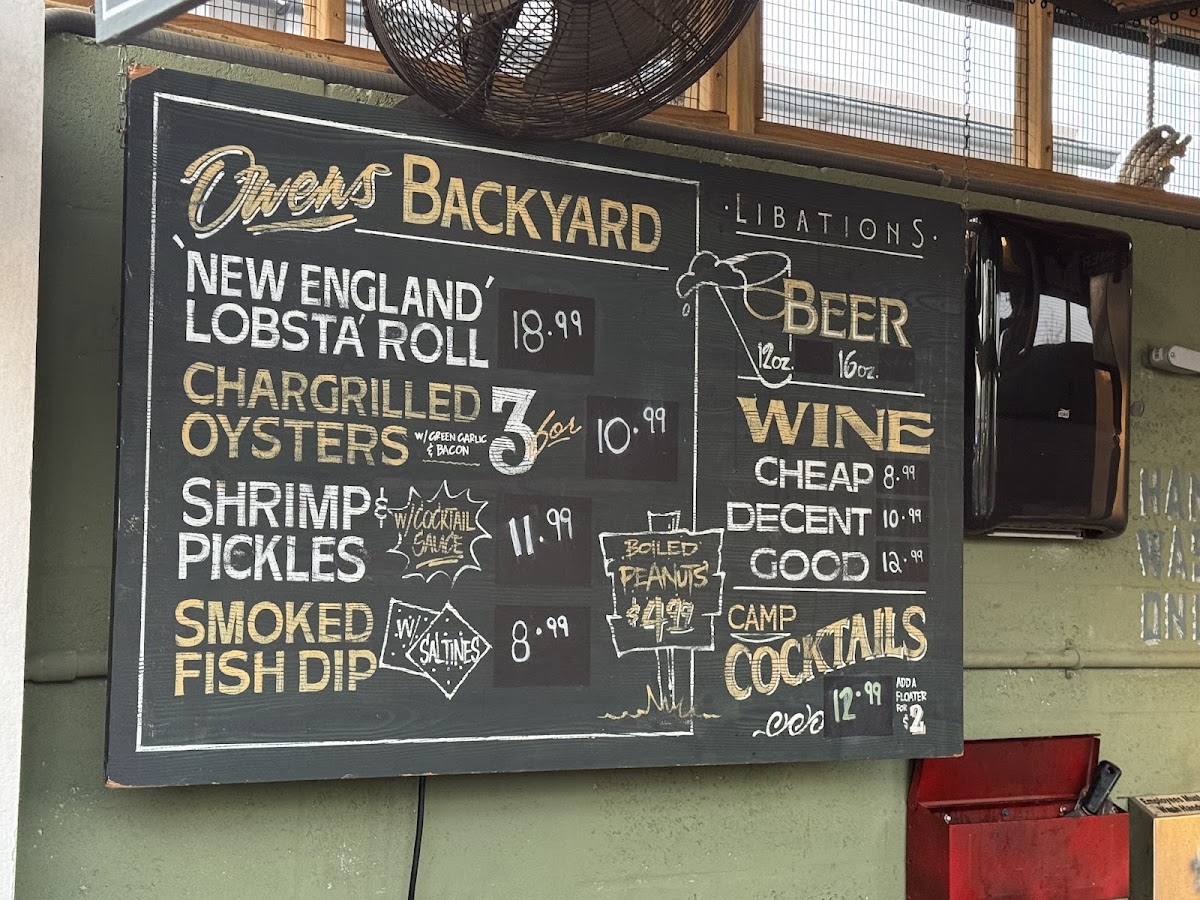 Owens BACKYARD
'NEW ENGLAND'
LOBSTA' ROLL 18.99
CHARGRILLED
OYSTERS W/ GREEN GARLIC
& BACON
3 for 10.99
SHRIMP &
PICKLES
W/ COCKTAIL
SAUCE
11.99
SMOKED
FISH DIP
W/
SALTINES
8.99
BOILED
PEANUTS
$4.99
·LIBATIONS·
BEER
12oz. 16oz.
WINE
CHEAP 8.99
DECENT 10.99
GOOD 12.99
CAMP
COCKTAILS
12.99
ADD A
FLOATER
FOR
$2
Employees Must
Wash Hands